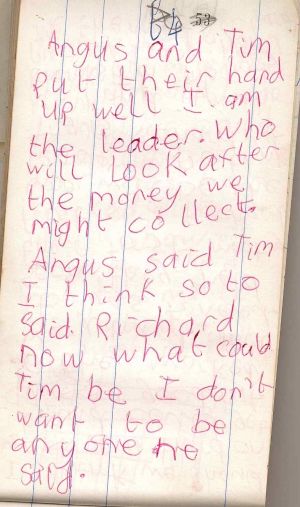 64 53
Angus and Tim
put their hand
up well I am
the leader. Who
will look after
the money we
might collect.
Angus said Tim
I think so to
said Richard
now what could
Tim be I don't
want to be
anyone he
said.